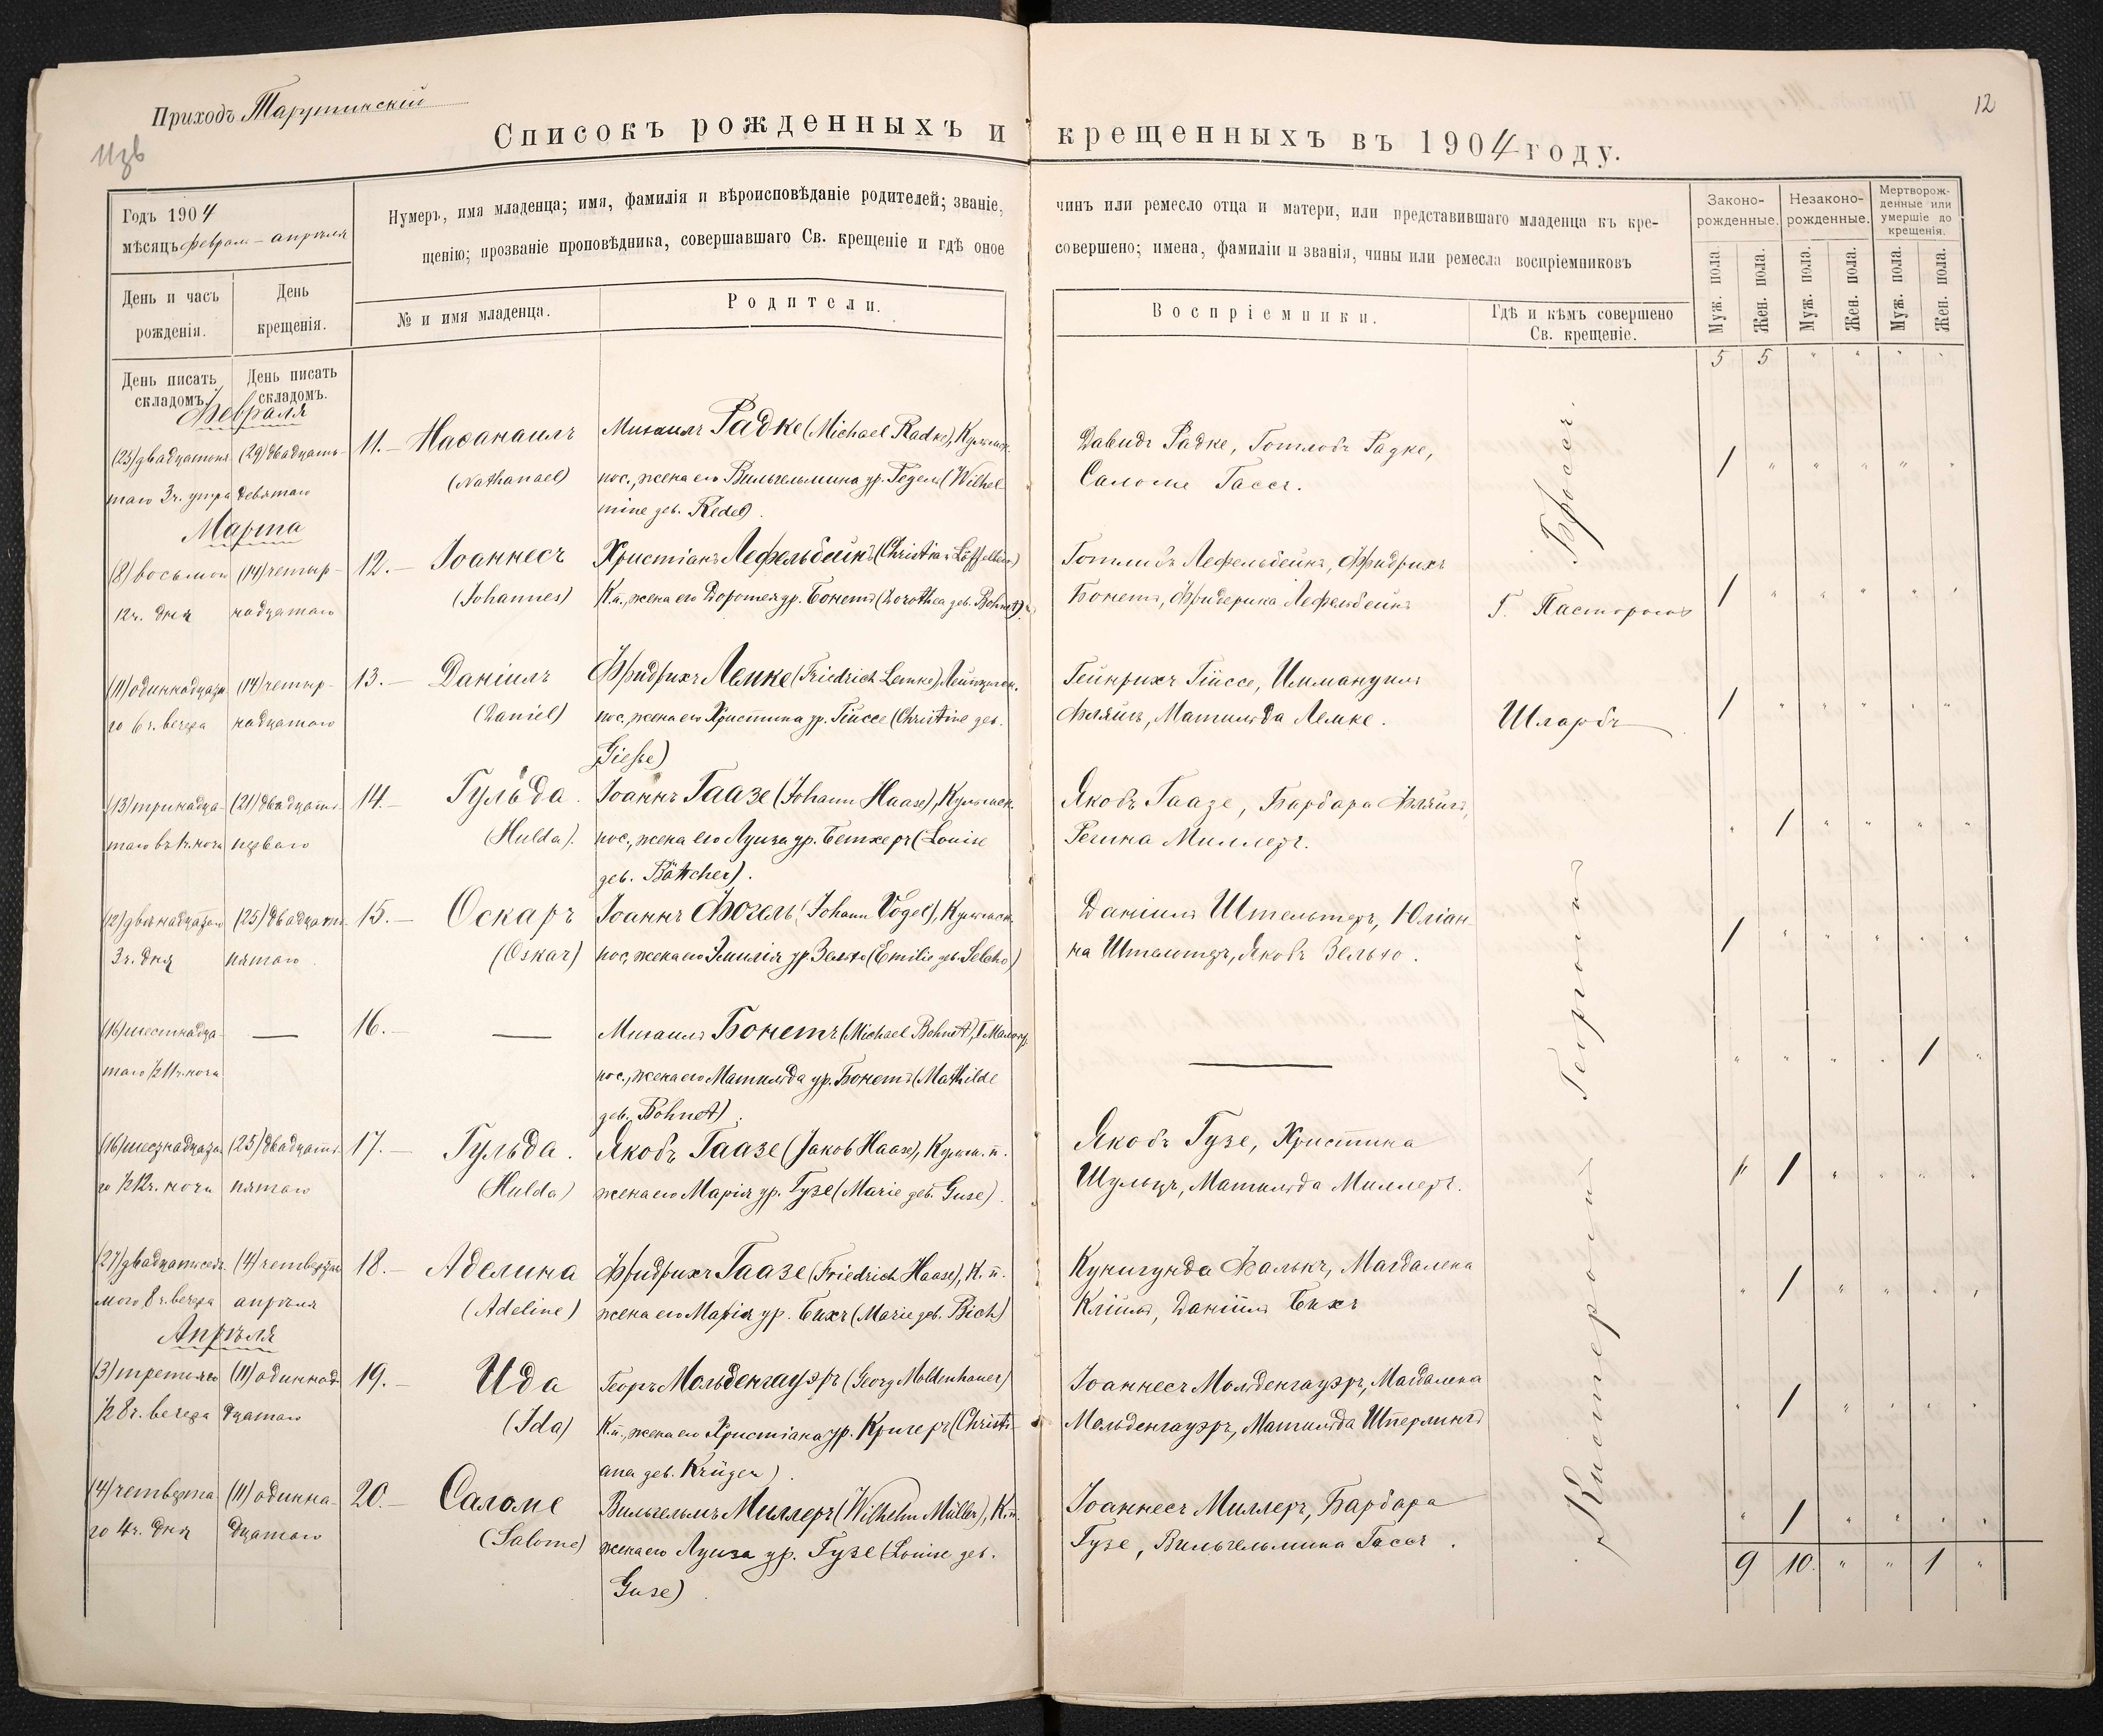 Приходъ Тарутинскій
12
Списокъ рожденныхъ и крещенныхъ въ 1904 году.
Годъ 1904
мѣсяцъ февраль – апрѣля
Нумеръ, имя младенца; имя, фамилія и вѣроисповѣданіе родителей; званіе, чинъ или ремесло отца и матери, или представившаго младенца къ кре-
щенію; прозваніе проповѣдника, совершавшаго Св. крещеніе и гдѣ оное совершено; имена, фамиліи и званія, чины или ремесла воспріемниковъ
Законо-
рожденные.
Незаконо-
рожденные.
Мертворож-
денные или
умершіе до
крещенія.
День и часъ
рожденія.
День
крещенія.
№ и имя младенца.
Родители.
Воспріемники.
Гдѣ и кѣмъ совершено
Св. крещеніе.
Муж. пола.
Жен. пола.
Муж. пола.
Жен. пола.
Муж. пола.
Жен. пола.
День писать
складомъ.
День писать
складомъ.
5 5 " " " "
Февраля
(23) двадцатьтре-
тьяго 3 ч. утра
(29) двадцать-
девятаго
11.– Наѳанаилъ
(Nathanael)
Михаилъ Радке (Michael Radke), Кульмск.
пос., жена его Вильгельмина ур. Редель (Wilhel-
mine geb. Redel).
Давидъ Радке, Готлобъ Радке,
Саломе Гассъ.
1 " " " " "
Марта
(8) восьмой
12 ч. дня
(14) четыр-
надцатаго
12.– Іоаннесъ
(Johannes)
Христіанъ Лефельбейнъ (Christian Löffelbein)
К.п., жена его Доротея ур. Бонетъ (Dorothea geb. Bohnet).
Готлибъ Лефельбейнъ, Фридрихъ
Бонетъ, Фридерика Лефельбейнъ
1 " " " " "
(11) одиннадцата-
го 6 ч. вечера
(14) четыр-
надцатаго
13.– Даніилъ
(Daniel)
Фридрихъ Лемке (Friedrich Lemke) Лейпцигск.
пос., жена его Христина ур. Гиссе (Christine geb.
Gieße)
Гейнрихъ Гиссе, Иммануилъ
Фляйгъ, Матильда Лемке.
1 " " " " "
(13) тринадца-
таго въ 1 ч. ночи
(21) двадцать
перваго
14.– Гульда.
(Hulda).
Іоаннъ Гаазе (Johann Haase), Кульмск.
пос., жена его Луиза ур. Бетхеръ (Louise
geb. Böttcher).
Якобъ Гаазе, Барбара Фляйгъ,
Регина Миллеръ.
" 1 " " " "
(12) двѣнадцатаго
3 ч. дня
(25) двадцать
пятаго
15.– Оскаръ
(Oskar)
Іоаннъ Фогель (Johann Vogel), Кульмск.
пос., жена его Эмилія ур. Зельхо (Emilie geb. Selcho)
Даніилъ Штельтеръ, Юліан-
на Штельтеръ, Яковъ Зельхо.
1 " " " " "
(16) шестнадца-
таго ½ 11 ч. ночи
—
16.– —
Михаилъ Бонетъ (Michael Bohnet), I Малояр.
пос., жена его Матильда ур. Бонетъ (Mathilde
geb. Bohnet).
—
" " " " 1 "
(16) шестнадцата-
го ½ 12 ч. ночи
(25) двадцать
пятаго
17.– Гульда.
(Hulda)
Якобъ Гаазе (Jakob Haase), Кульм. п.
жена его Марія ур. Гузе (Marie geb. Guse).
Якобъ Гузе, Христина
Шульцъ, Матильда Миллеръ.
" 1 " " " "
(27) двадцатьседь-
маго 8 ч. вечера
(4) четвертаго
апрѣля
18.– Аделина
(Adeline)
Фридрихъ Гаазе (Friedrich Haase), К. п.
жена его Марія ур. Бихъ (Marie geb. Bich)
Кунигунда Фалькъ, Магдалена
Кліймъ, Даніилъ Бихъ
" 1 " " " "
Апрѣля
(3) третьяго
½ 8 ч. вечера
(11) одиннад-
цатаго
19.– Ида
(Ida)
Георгъ Мольденгауэръ (Georg Moldenhauer)
К.п., жена его Христіана ур. Кригеръ (Christi-
ana geb. Krüger).
Іоаннесъ Мольденгауэръ, Магдалена
Мольденгауэръ, Матильда Шперлингъ
" 1 " " " "
(4) четверта-
го 4 ч. дня
(11) одинна-
дцатаго
20.– Саломе
(Salome)
Вильгельмъ Миллеръ (Wilhelm Müller), К.п.
жена его Луиза ур. Гузе (Louise geb.
Guse).
Іоаннесъ Миллеръ, Барбара
Гузе, Вильгельмина Гассъ.
" 1 " " " "
9 10 " " 1 "
Г. Пасторомъ
Шларъ
Кистеромъ Георгомъ Броссъ.